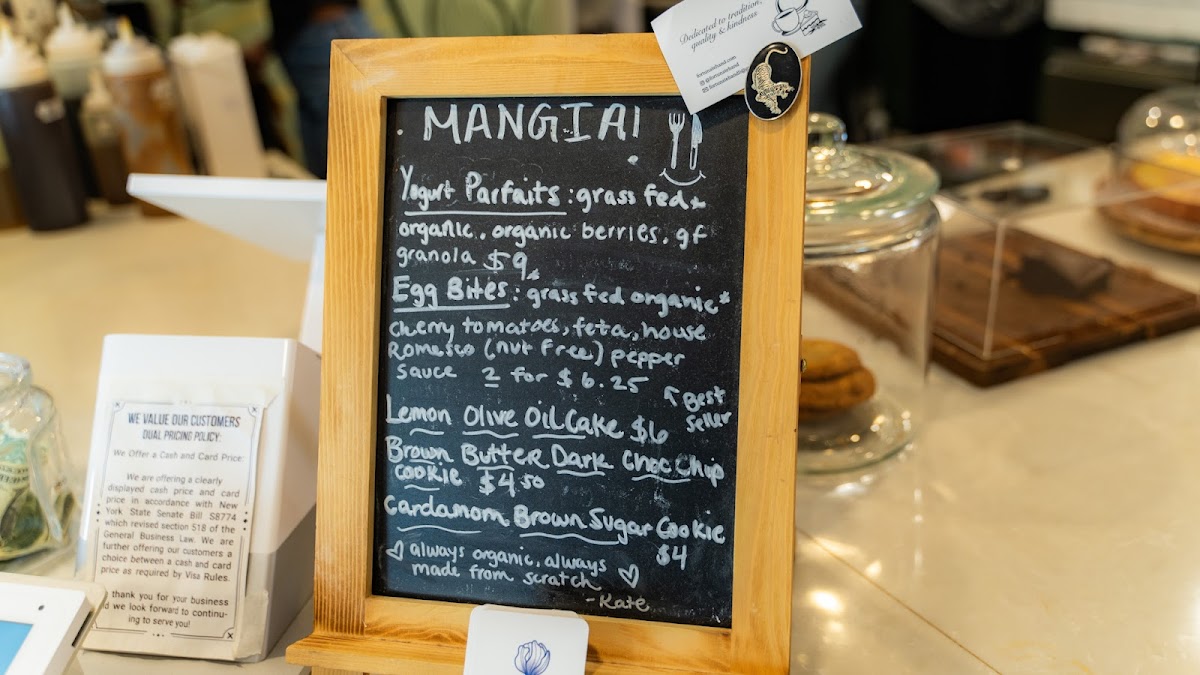 Dedicated to tradition,
quality & kindness
MANGIA!
Yogurt Parfaits: grass fed &
organic. organic berries. gf
granola $9
Egg Bites: grass fed organic*
cherry tomatoes, feta, house
Romesco (nut free) pepper
sauce 2 for $6.25
Best
Seller
Lemon Olive Oil Cake $6
Brown Butter Dark Choc Chip
Cookie $4.50
Cardamom Brown Sugar Cookie
$4
always organic, always
made from scratch
-Kate
WE VALUE OUR CUSTOMERS
DUAL PRICING POLICY:
We Offer a Cash and Card Price:
We are offering a clearly
displayed cash price and card
price in accordance with New
York State Senate Bill S8774
which revised section 518 of the
General Business Law. We are
further offering our customers a
choice between a cash and card
price as required by Visa Rules.
thank you for your business
d we look forward to continu-
ing to serve you!